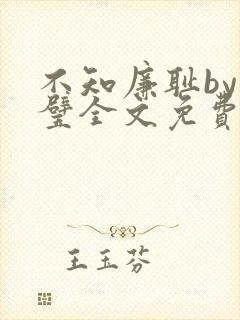 不知廉耻by
璧全文免费
王玉芬